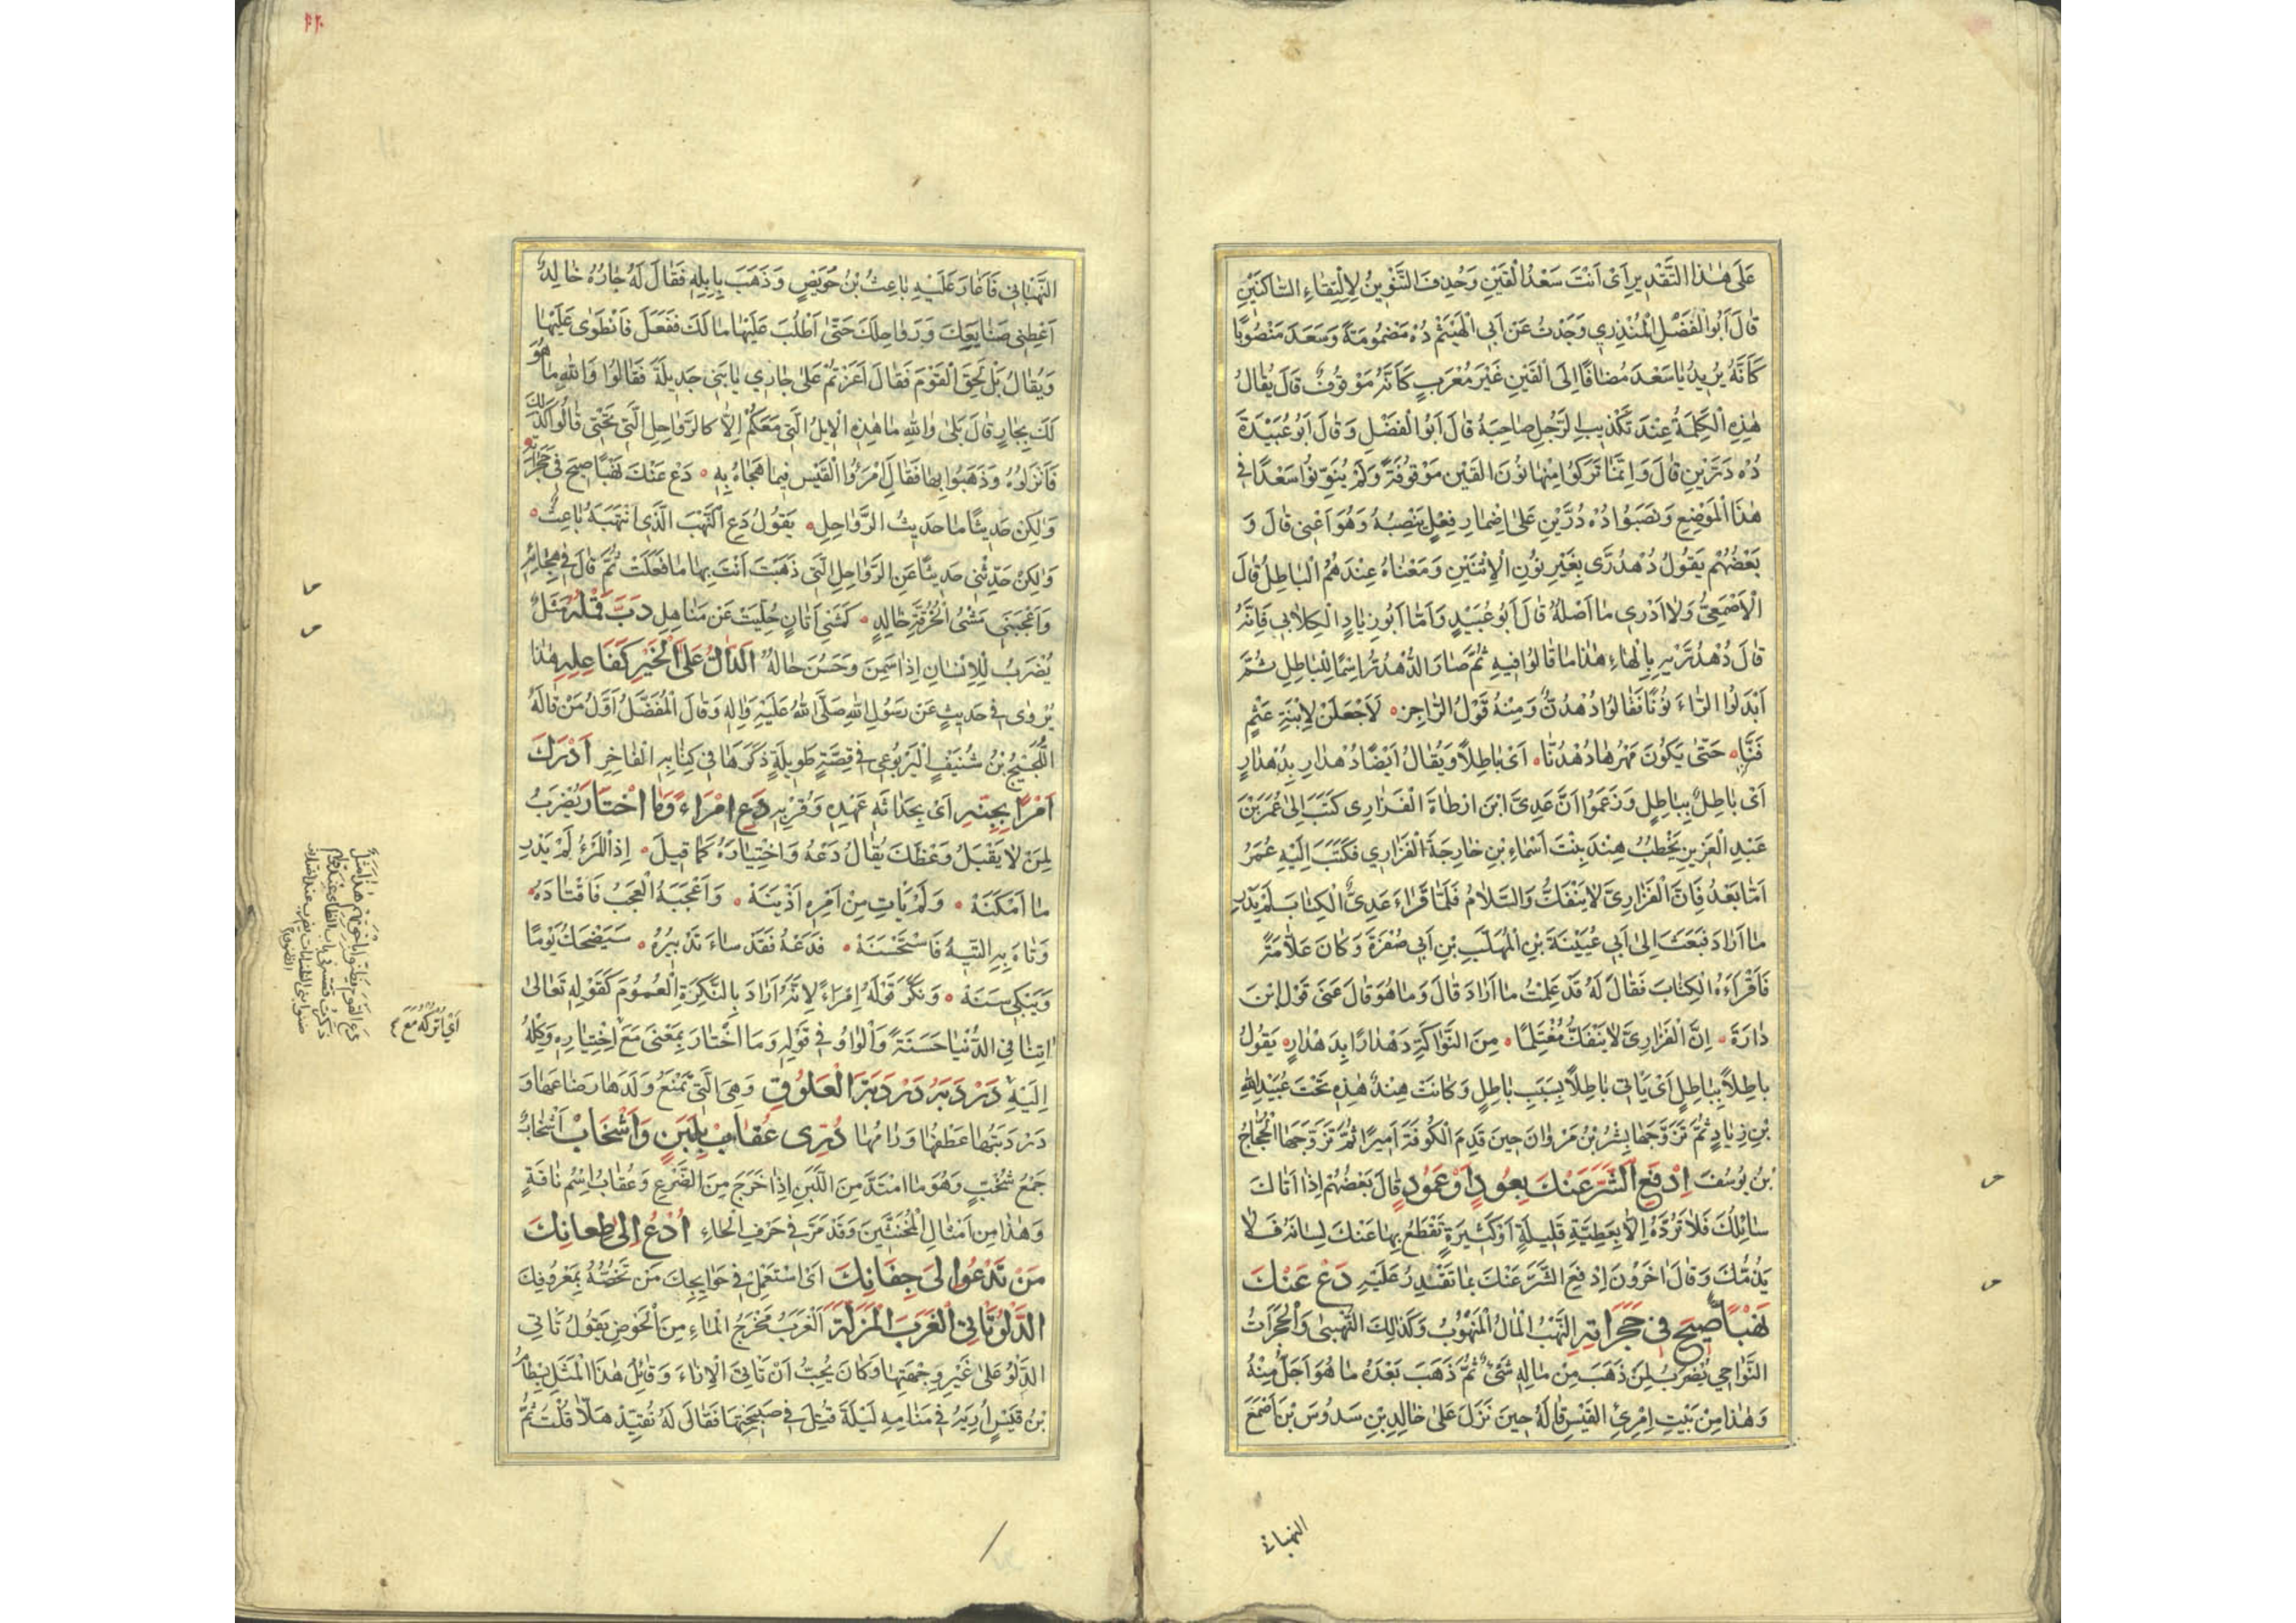 عَلَى هٰذَا التَّقْدِيرِ اَيْ اَنْتَ سَعْدُ الْقَيْنِ وَحُذِفَ التَّنْوِينُ لِاِلْتِقَاءِ السَّاكِنَيْنِ
قَالَ اَبُو الْفَضْلِ الْمُنْذِرِي وَجَدْتُ عَنْ اَبِي الْهَيْثَمِ دُهْ مَضْمُومَةً وَسَعَدَ مَنْصُوبًا
كَاَنَّهُ يُرِيدُ يَا سَعْدَ مُضَافًا اِلَى الْقَيْنِ غَيْرَ مُعْرَبٍ كَاَنَّهُ مَوْقُوفٌ قَالَ يُقَالُ
هٰذِهِ الْكَلِمَةُ عِنْدَ تَكْذِيبِ الرَّجُلِ صَاحِبَهُ قَالَ اَبُو الْفَضْلِ وَقَالَ اَبُو عُبَيْدَةَ
دُهْ دُرَّيْنِ قَالَ وَاِنَّمَا تَرَكُوا مِنْهَا نُونَ الْقَيْنِ مَوْقُوفَةً وَلَمْ يُنَوِّنُوا سَعْدًا فِي
هٰذَا الْمَوْضِعِ وَنَصَبُوا دُهْ دُرَّيْنِ عَلَى اِضْمَارِ فِعْلٍ يَنْصِبُهُ وَهُوَ اَعْنِي قَالَ وَ
بَعْضُهُمْ يَقُولُ دُهْدُرَّى بِغَيْرِ نُونِ الْاِثْنَيْنِ وَمَعْنَاهُ عِنْدَهُمُ الْبَاطِلُ قَالَ
الْاَصْمَعِيُّ وَلَا اَدْرِي مَا اَصْلُهُ قَالَ اَبُو عُبَيْدٍ وَاَمَّا اَبُو زِيَادٍ الْكِلَابِي فَاِنَّهُ
قَالَ دُهْدُرَّيْهِ بِالْهَاءِ هٰذَا مَا قَالُوا فِيهِ ثُمَّ صَارَ الدُّهْدُرُّ اِسْمًا لِلْبَاطِلِ ثُمَّ
اَبْدَلُوا الرَّاءَ نُونًا فَقَالُوا دُهْدُنٌّ وَمِنْهُ قَوْلُ الرَّاجِزِ لَاَجْعَلَنْ لِابْنَةِ عَثْمٍ
فَنَّا حَتَّى يَكُونَ مَهْرُهَا دُهْدُنَّا اَيْ بَاطِلًا وَيُقَالُ اَيْضًا دُهْدَارِ بِدُهْدَارٍ
اَيْ بَاطِلٌ بِبَاطِلٍ وَزَعَمُوا اَنَّ عَدِيَّ ابْنَ اَرْطَاةَ الْفَزَارِي كَتَبَ اِلَى عُمَرَ بْنِ
عَبْدِ الْعَزِيزِ يَخْطُبُ هِنْدَ بِنْتَ اَسْمَاءَ بْنِ خَارِجَةَ الْفَزَارِي فَكَتَبَ اِلَيْهِ عُمَرُ
اَمَّا بَعْدُ فَاِنَّ الْفَزَارِيَّ لَا يَنْفَكُّ وَالسَّلَامُ فَلَمَّا قَرَاَءَ عَدِيٌّ الْكِتَابَ لَمْ يَدْرِ
مَا اَرَادَ فَبَعَثَ اِلَى اَبِي عُيَيْنَةَ بْنِ الْمُهَلَّبِ بْنِ اَبِي صُفْرَةَ وَكَانَ عَلَّامَةً
فَاَقْرَاَهُ الْكِتَابَ فَقَالَ لَهُ قَدْ عَلِمْتُ مَا اَرَادَ قَالَ وَمَا هُوَ قَالَ عَنَى قَوْلَ ابْنِ
دَارَةَ اِنَّ الْفَزَارِيَّ لَا يَنْفَكُّ مُغْتَلِمًا مِنَ النَّوَاكَةِ دَهْدَارًا بِدَهْدَارٍ يَقُولُ
بَاطِلًا بِبَاطِلٍ اَيْ يَاْتِي بَاطِلًا بِسَبَبِ بَاطِلٍ وَكَانَتْ هِنْدٌ هٰذِهِ تَحْتَ عُبَيْدِ اللهِ
بْنِ زِيَادٍ ثُمَّ تَزَوَّجَهَا بِشْرُ بْنُ مَرْوَانَ حِينَ قَدِمَ الْكُوفَةَ اَمِيرًا ثُمَّ تَزَوَّجَهَا الْحَجَّاجُ
بْنُ يُوسُفَ اِدْفَعِ الشَّرَّ عَنْكَ بِعُودٍ اَوْ عَمُودٍ قَالَ بَعْضُهُمْ اِذَا اَتَاكَ
سَائِلُكَ فَلَا تَرُدَّهُ اِلَّا بِعَطِيَّةٍ قَلِيلَةٍ اَوْ كَثِيرَةٍ تَقْطَعُ بِهَا عَنْكَ لِسَانَهُ فَلَا
يَذُمُّكَ وَقَالَ اٰخَرُونَ اِدْفَعِ الشَّرَّ عَنْكَ بِمَا تَقْدِرُ عَلَيْهِ دَعْ عَنْكَ
نَهْبًا صِيحَ فِي حَجَرَاتِهِ النَّهْبُ الْمَالُ الْمَنْهُوبُ وَكَذٰلِكَ النُّهْبَى وَالْحَجَرَاتُ
النَّوَاحِي يُضْرَبُ لِمَنْ ذَهَبَ مِنْ مَالِهِ شَيْءٌ ثُمَّ ذَهَبَ بَعْدَهُ مَا هُوَ اَجَلُّ مِنْهُ
وَهٰذَا مِنْ بَيْتِ اِمْرِئِ الْقَيْسِ قَالَهُ حِينَ نَزَلَ عَلَى خَالِدِ بْنِ سَدُوسَ بْنِ اَصْمَعَ
النبهانی
النَّبْهَانِي فَاَغَارَ عَلَيْهِ بَاعِثُ بْنُ حُوَيْصٍ وَذَهَبَ بِاِبِلِهِ فَقَالَ لَهُ جَارُهُ خَالِدٌ
اَعْطِنِي صَنَايِعَكَ وَرَوَاحِلَكَ حَتَّى اَطْلُبَ عَلَيْهَا مَا لَكَ فَفَعَلَ فَانْطَوَى عَلَيْهَا
وَيُقَالُ بَلْ لَحِقَ الْقَوْمَ فَقَالَ اَغَرْتُمْ عَلَى جَارِي يَا بَنِي جَدِيلَةَ فَقَالُوا وَاللهِ مَا هُوَ
لَكَ بِجَارٍ قَالَ بَلَى وَاللهِ مَا هٰذِهِ الْاِبِلُ الَّتِي مَعَكُمْ اِلَّا كَالرَّوَاحِلِ الَّتِي تَحْتِي قَالُوا كَذٰلِكَ
فَاَنْزَلُوهُ وَذَهَبُوا بِهَا فَقَالَ امْرَؤُ الْقَيْسِ فِيمَا هَجَاهُ بِهِ دَعْ عَنْكَ نَهْبًا صِيحَ فِي حَجَرَاتِهِ
وَلٰكِنْ حَدِيثًا مَا حَدِيثُ الرَّوَاحِلِ يَقُولُ دَعِ النَّهْبَ الَّذِي انْتَهَبَهُ بَاعِثٌ
وَلٰكِنْ حَدِّثْنِي حَدِيثًا عَنِ الرَّوَاحِلِ الَّتِي ذَهَبْتَ اَنْتَ بِهَا مَا فَعَلَتْ ثُمَّ قَالَ فِي هِجَائِهِ
وَاَعْجَبَنِي مَشْيُ الْحُزُقَّةِ خَالِدٍ كَمَشْيِ اَتَانٍ حُلِّيَتْ عَنْ مَنَاهِلِ دَبَّ قَمْلُهُ مَثَلٌ
يُضْرَبُ لِلْاِنْسَانِ اِذَا سَمِنَ وَحَسُنَ حَالُهُ الدَّالُّ عَلَى الْخَيْرِ كَفَاعِلِهِ هٰذَا
يُرْوٰى فِي حَدِيثٍ عَنْ رَسُولِ اللهِ صَلَّى اللهُ عَلَيْهِ وَاٰلِهِ وَقَالَ الْمُفَضَّلُ اَوَّلُ مَنْ قَالَهُ
اللُّجَيْجُ بْنُ شُنَيْفٍ الْيَرْبُوعِي فِي قِصَّةٍ طَوِيلَةٍ ذَكَرَهَا فِي كِتَابِهِ الْفَاخِرِ اَدْرَكَ
اَمْرًا بِجِنِّهِ اَيْ بِحَدَاثَةِ عَهْدِهِ وَقُرْبِهِ دَعِ امْرَاءً وَمَا اخْتَارَ يُضْرَبُ
لِمَنْ لَا يَقْبَلُ وَعْظَكَ يُقَالُ دَعْهُ وَاخْتِيَارَهُ كَمَا قِيلَ اِذَا الْمَرْءُ لَمْ يَدْرِ
مَا اَمْكَنَهْ وَلَمْ يَاْتِ مِنْ اَمْرِهِ اَزْيَنَهْ وَاَعْجَبَهُ الْعُجْبُ فَاقْتَادَهُ
وَتَاهَ بِهِ التِّيهُ فَاسْتَحْسَنَهْ فَدَعْهُ فَقَدْ سَاءَ تَدْبِيرُهُ سَيَضْحَكُ يَوْمًا
وَيَبْكِي سَنَهْ وَنَكَّرَ قَوْلَهُ اِمْرَاءً لِاَنَّهُ اَرَادَ بِالنَّكِرَةِ الْعُمُومَ كَقَوْلِهِ تَعَالَى
اٰتِنَا فِي الدُّنْيَا حَسَنَةً وَالْوَاوُ فِي قَوْلِهِ وَمَا اخْتَارَ بِمَعْنَى مَعَ اِخْتِيَارِهِ وَكِلْهُ
اِلَيْهِ دَرْدَبَ دَرْدَبَةَ الْعَلُوقِ وَهِيَ الَّتِي تَمْنَعُ وَلَدَهَا رَضَاعَهَا وَ
دَرْدَبَتُهَا عَطْفُهَا وَرَامُهَا دُرِّى عُقَابُ بِلَبَنٍ وَاَشْخَابْ اَشْخَابٌ
جَمْعُ شُخْبٍ وَهُوَ مَا امْتَدَّ مِنَ اللَّبَنِ اِذَا خَرَجَ مِنَ الضَّرْعِ وَعُقَابُ اِسْمُ نَاقَةٍ
وَهٰذَا مِنْ اَمْثَالِ الْمُخَنَّثِينَ وَقَدْ مَرَّ فِي حَرْفِ الْحَاءِ اُدْعُ اِلَى طِعَانِكَ
مَنْ تَدْعُوا لَى جِفَانِكَ اَيْ اسْتَعْمِلْ فِي حَوَايِجِكَ مَنْ تَخُصُّهُ بِمَعْرُوفِكَ
الدَّلْوُ تَاْتِي الْغَرَبَ الْمَزَلَّةَ اَلْغَرَبُ مَخْرَجُ الْمَاءِ مِنَ الْحَوْضِ يَقُولُ تَاْتِي
الدَّلْوُ عَلَى غَيْرِ وِجْهَتِهَا وَكَانَ يُحِبُّ اَنْ تَاْتِيَ الْاِنَاءَ وَقَائِلُ هٰذَا الْمَثَلِ بِسْطَامُ
بْنُ قَيْسٍ اُرِيَهُ فِي مَنَامِهِ لَيْلَةَ قُتِلَ فِي صَبِيحَتِهَا فَقَالَ لَهُ نُقَيْذٌ هَلَّا قُلْتَ ثُمَّ
اَيْ اُتْرُكْهُ مَعَ